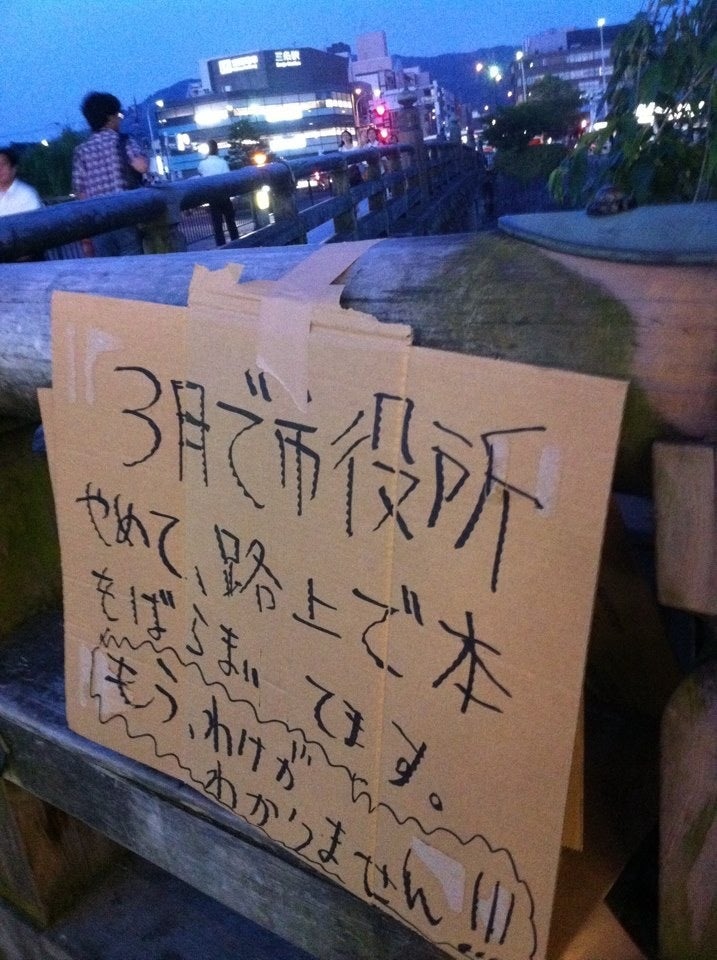 三条駅
3月で市役所
やめて、路上で本
をばらまいてます。
もう、わけが
わかりません!!!